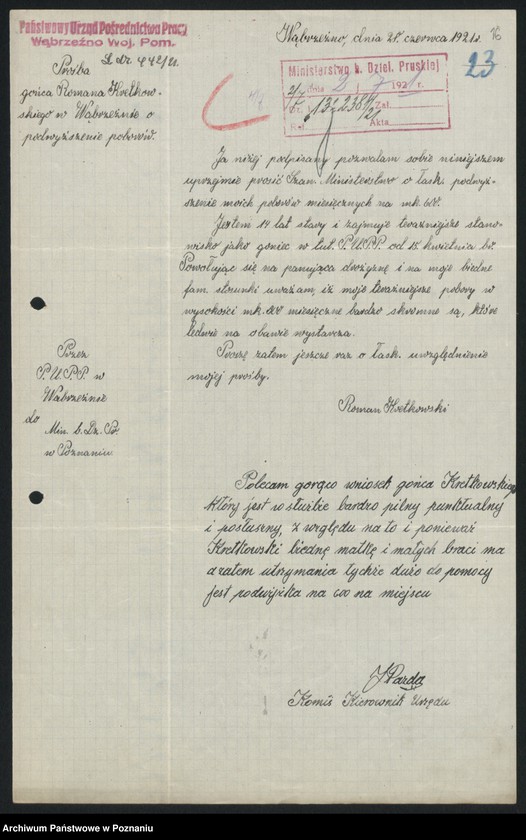 Państwowy Urząd Pośrednictwa Pracy
Wąbrzeźno Woj. Pom.
L. dz. 442/21.
Wąbrzeźno, dnia 21 czerwca 1921r.
23
Prośba
gońca Romana Kretkow-
skiego w Wąbrzeźnie o
podwyższenie poborów.
Ministerstwo b. Dziel. Pruskiej
dnia 2 / 7 1921
Zał.
Ref. Akta
Ja niżej podpisany pozwalam sobie niniejszem
uprzejmie prosić Szan. Ministerstwo o łask. podwyż-
szenie moich poborów miesięcznych na mk. 600.
Jestem 14 lat stary i zajmuje teraźniejsze stano-
wisko jako goniec w tut. P.U.P.P. od 15. kwietnia br.
Powołując się na panująca drożyznę i na moje biedne
fam. stosunki uważam, iż moje teraźniejsze pobory w
wysokości mk. 400 miesięczne bardzo skromne są, które
ledwie na obawie wystarcza.
Proszę zatem jeszcze raz o łask. uwzględnienie
mojej prośby.
Roman Kretkowski
Przez
P.U.P.P. w
Wąbrzeźnie
do
Min. b. Dz. Pr.
w Poznaniu.
Polecam gorąco wniosek gońca Kretkowskiego
który jest w służbie bardzo pilny punktualny
i posłuszny, z względu na to i ponieważ
Kretkowski biedną matkę i małych braci ma
a zatem utrzymania tychże dużo do pomocy
jest podwyżka na 600 na miejscu
J Parda
Komis Kierownik Urzędu
Archiwum Państwowe w Poznaniu